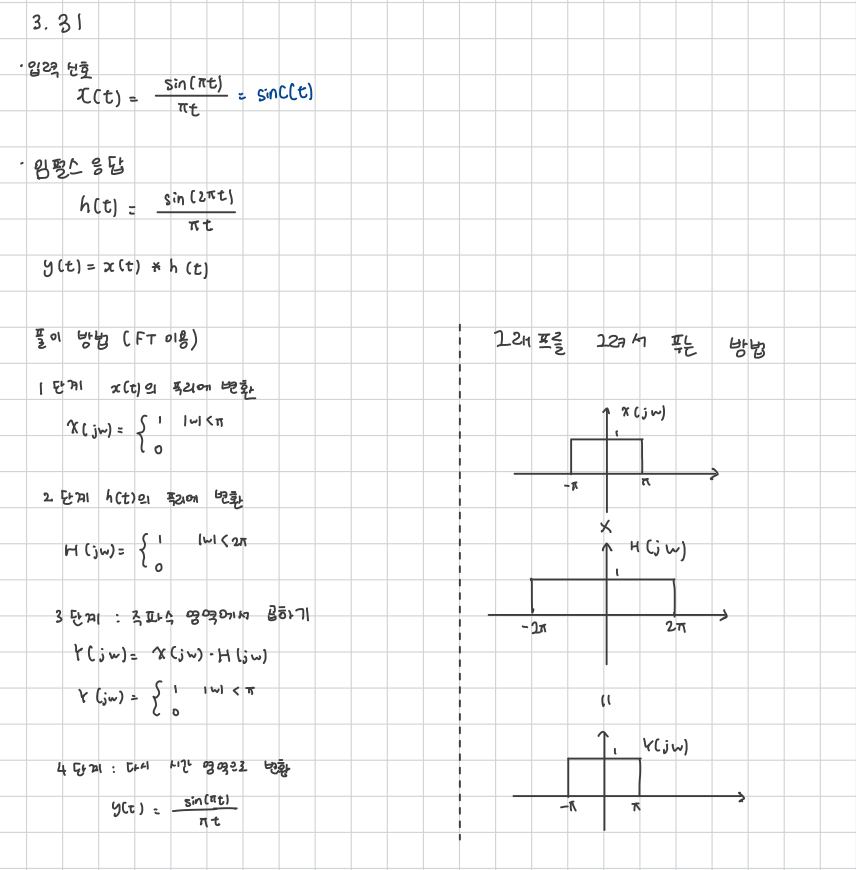 3. 31
· 입력 신호
x(t) = sin(πt) / πt = sinc(t)
· 임펄스 응답
h(t) = sin(2πt) / πt
y(t) = x(t) * h(t)
풀이 방법 (FT 이용)
1 단계 x(t)의 푸리에 변환
X(jw) = { 1 |w| < π
0
2 단계 h(t)의 푸리에 변환
H(jw) = { 1 |w| < 2π
0
3 단계 : 주파수 영역에서 곱하기
Y(jw) = X(jw) · H(jw)
Y(jw) = { 1 |w| < π
0
4 단계 : 다시 시간 영역으로 변환
y(t) = sin(πt) / πt
그래프를 그려서 푸는 방법
X(jw)
1
-π π
×
H(jw)
1
-2π 2π
=
Y(jw)
1
-π π